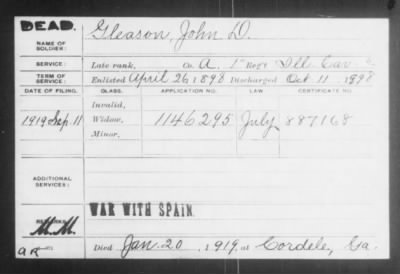 DEAD.
NAME OF SOLDIER: Gleason, John D.
SERVICE: Late rank, Co. A, 1st Reg't Ill. Cav.
TERM OF SERVICE: Enlisted April 26, 1898 Discharged Oct 11, 1898
DATE OF FILING. CLASS. APPLICATION NO. LAW. CERTIFICATE NO.
Invalid,
1919 Sep. 11 Widow, 1146295 July 887168
Minor,
ADDITIONAL SERVICES:
WAR WITH SPAIN.
REMARKS:
M.M.
Died Jan. 20, 1919, at Cordele, Ga.